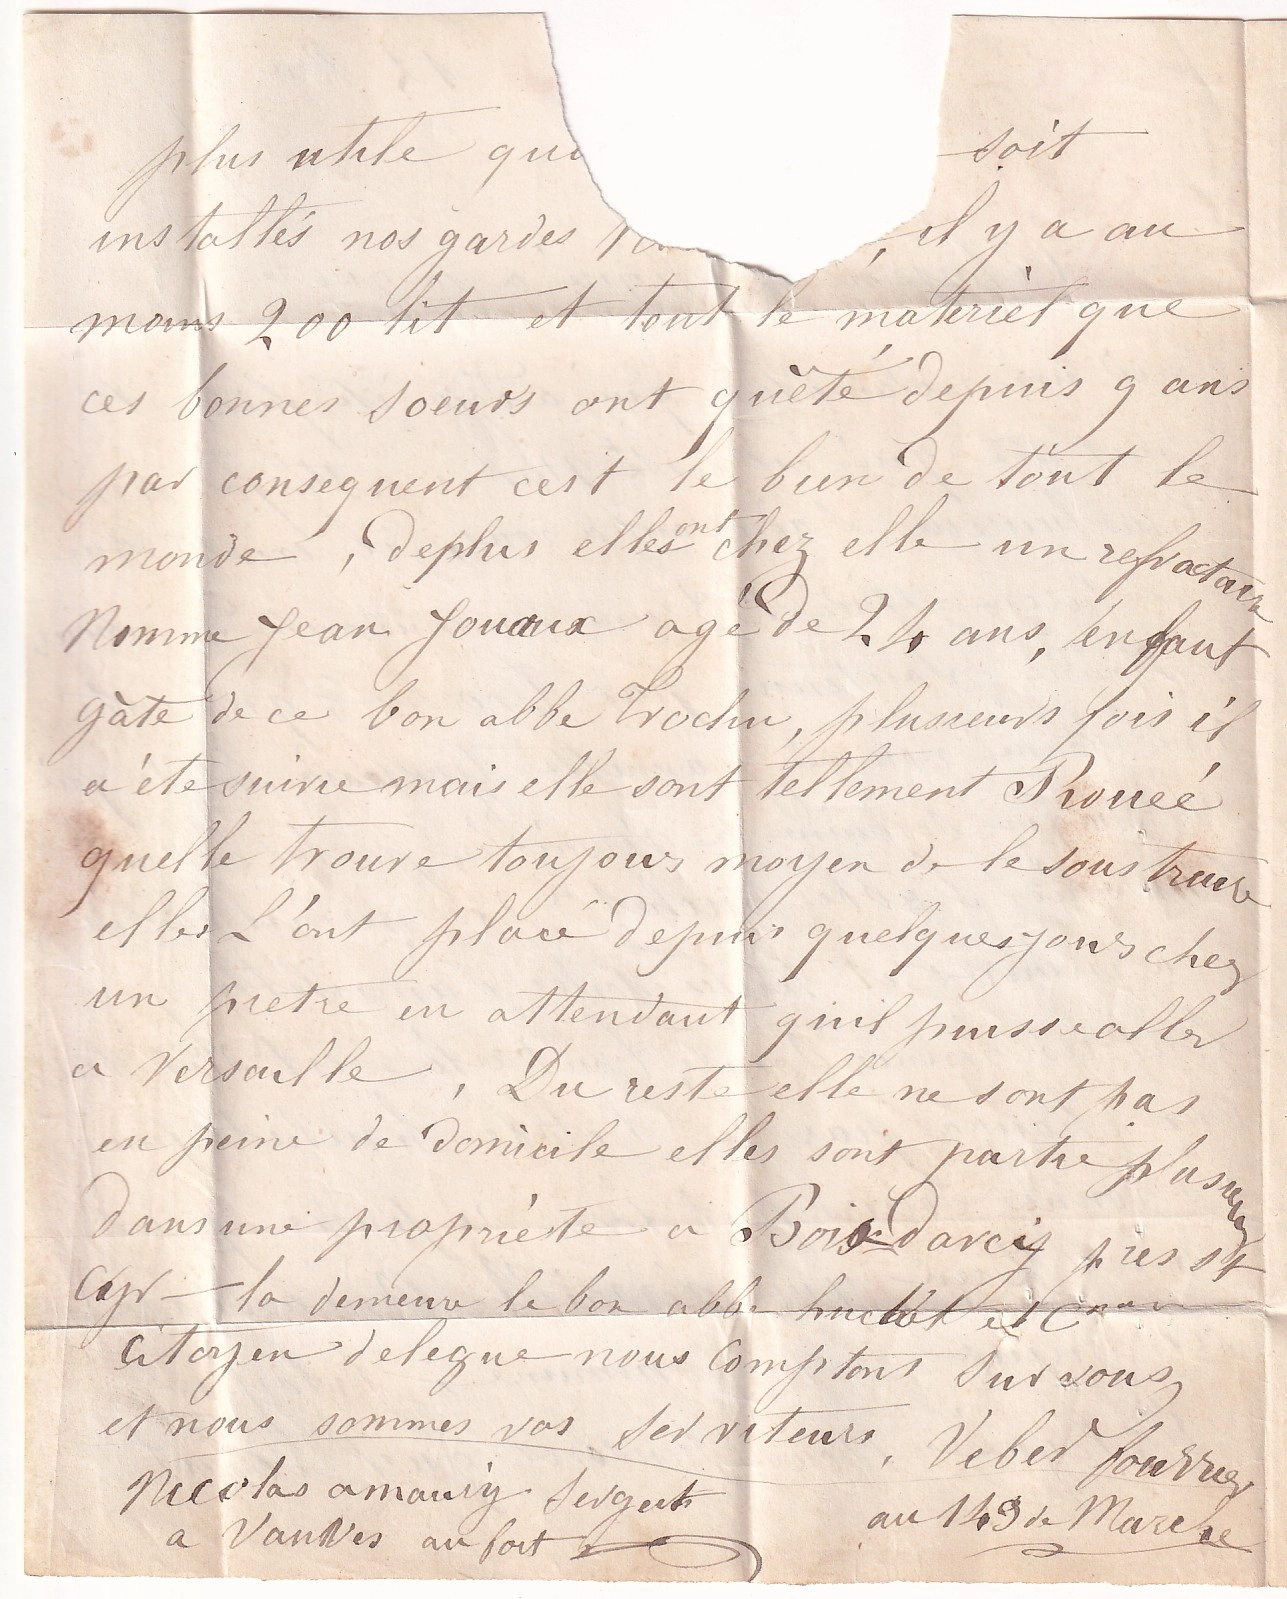 plus utile que soit
installés nos gardes , il y a au
moins 200 lit et tout le matériel que
ces bonnes soeurs ont quèté depuis 9 ans
par consequent cest le bien de tout le
monde , deplus elles ont chez elle un refractaire
Nomme Jean Jouaux agé de 24 ans, enfant
gàte de ce bon abbe Trochu, plusieurs fois il
a éte suivie mais elle sont tellement Rouéé
quelle trouve toujours moyen de le soustraire
elles L'ont placé depuis quelques jours chez
un pretre en attendant quil puisse aller
a Versaille , Du reste elle ne sont pas
en peine de domicile elles sont partie plusieurs
dans une propriète a Bois Darcy pres St
Cyr – la demeure le bon abbe et
Citoyen delegue nous Comptons Sur vous
et nous sommes vos serviteurs , Veber fourrier
Nicolas amaury Sergent
au 143 de Marche
a Vanves au fort